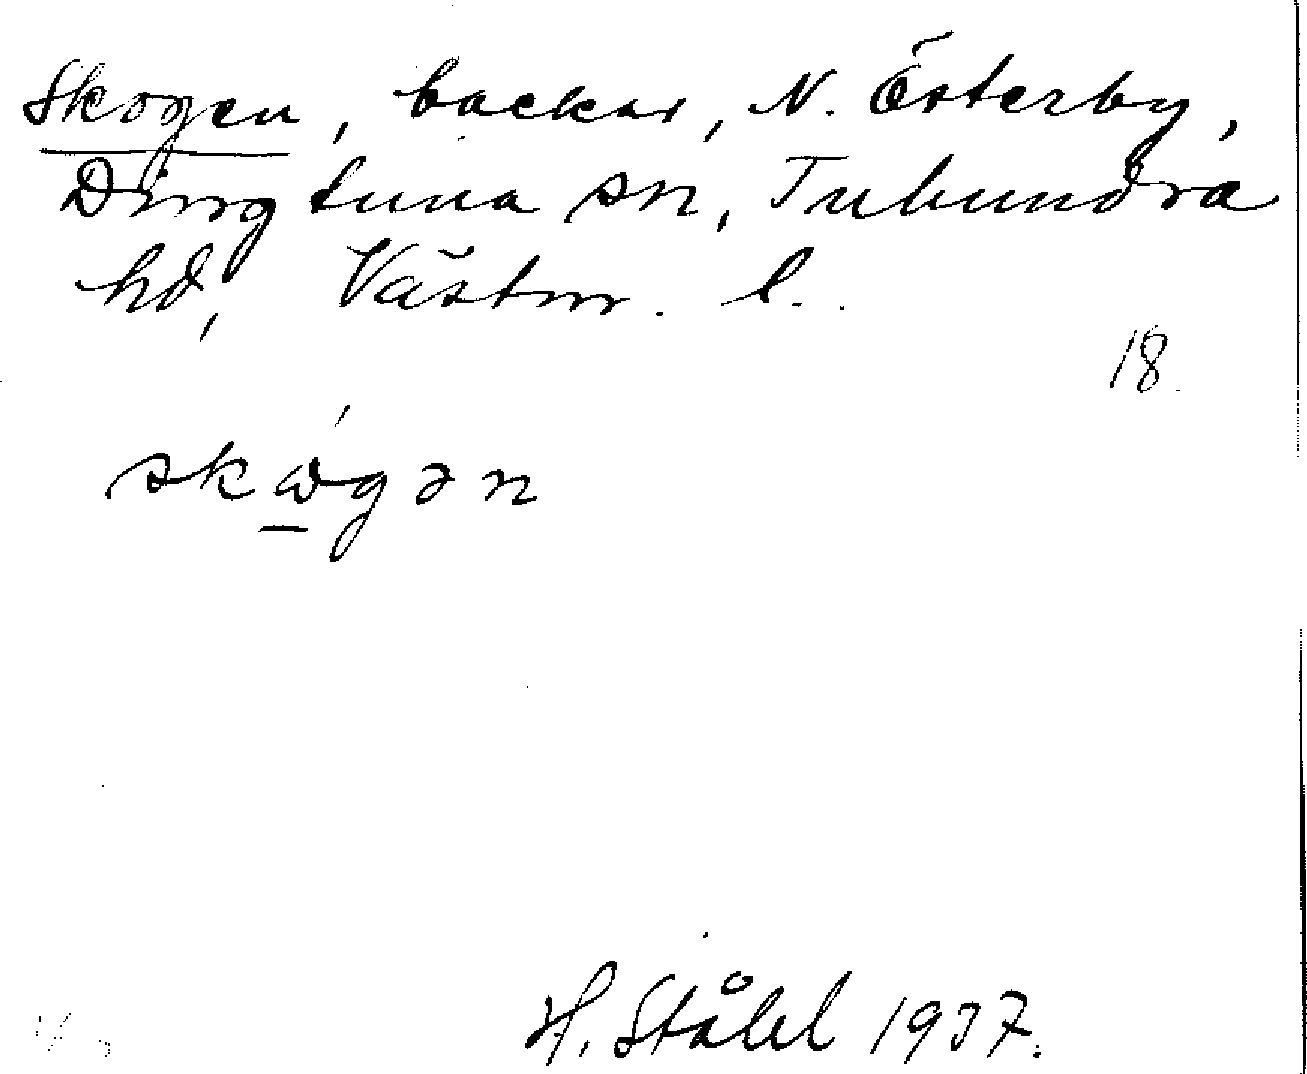 Skogen, backar, N. Österby,
Dingtuna sn, Tuhundra
hd, Västm. l.
18.
skώ̲gən
H. Ståhl 1937.